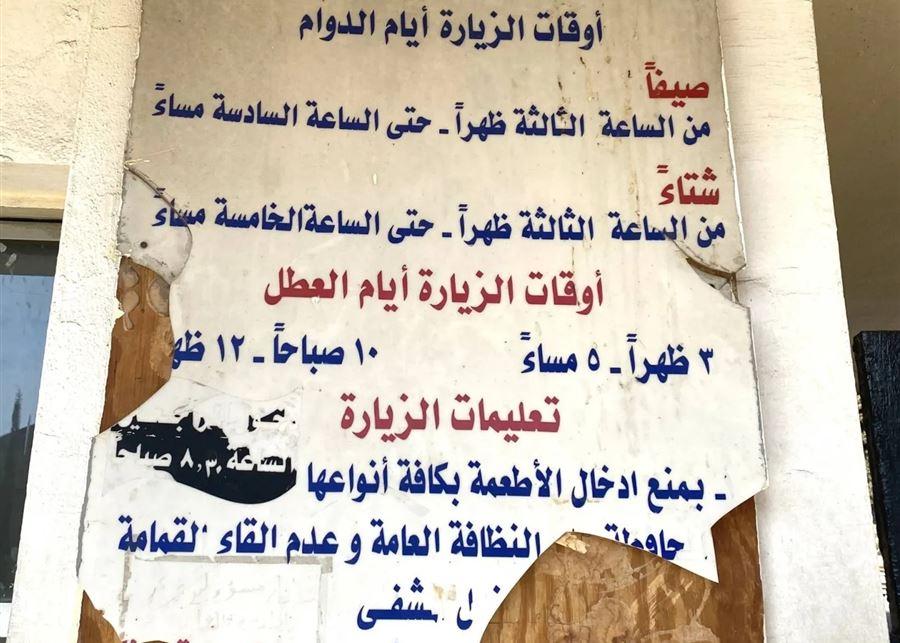 أوقات الزيارة أيام الدوام
صيفاً
من الساعة الثالثة ظهراً ـ حتى الساعة السادسة مساءً
شتاءً
من الساعة الثالثة ظهراً ـ حتى الساعة الخامسة مساءً
أوقات الزيارة أيام العطل
٣ ظهراً ـ ٥ مساءً ١٠ صباحاً ـ ١٢
تعليمات الزيارة
الساعة ٨,٣٠ صباحا
ـ بمنع ادخال الأطعمة بكافة أنواعها
النظافة العامة و عدم القاء القمامة